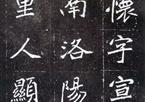 懷字宣
南洛陽
里人顯